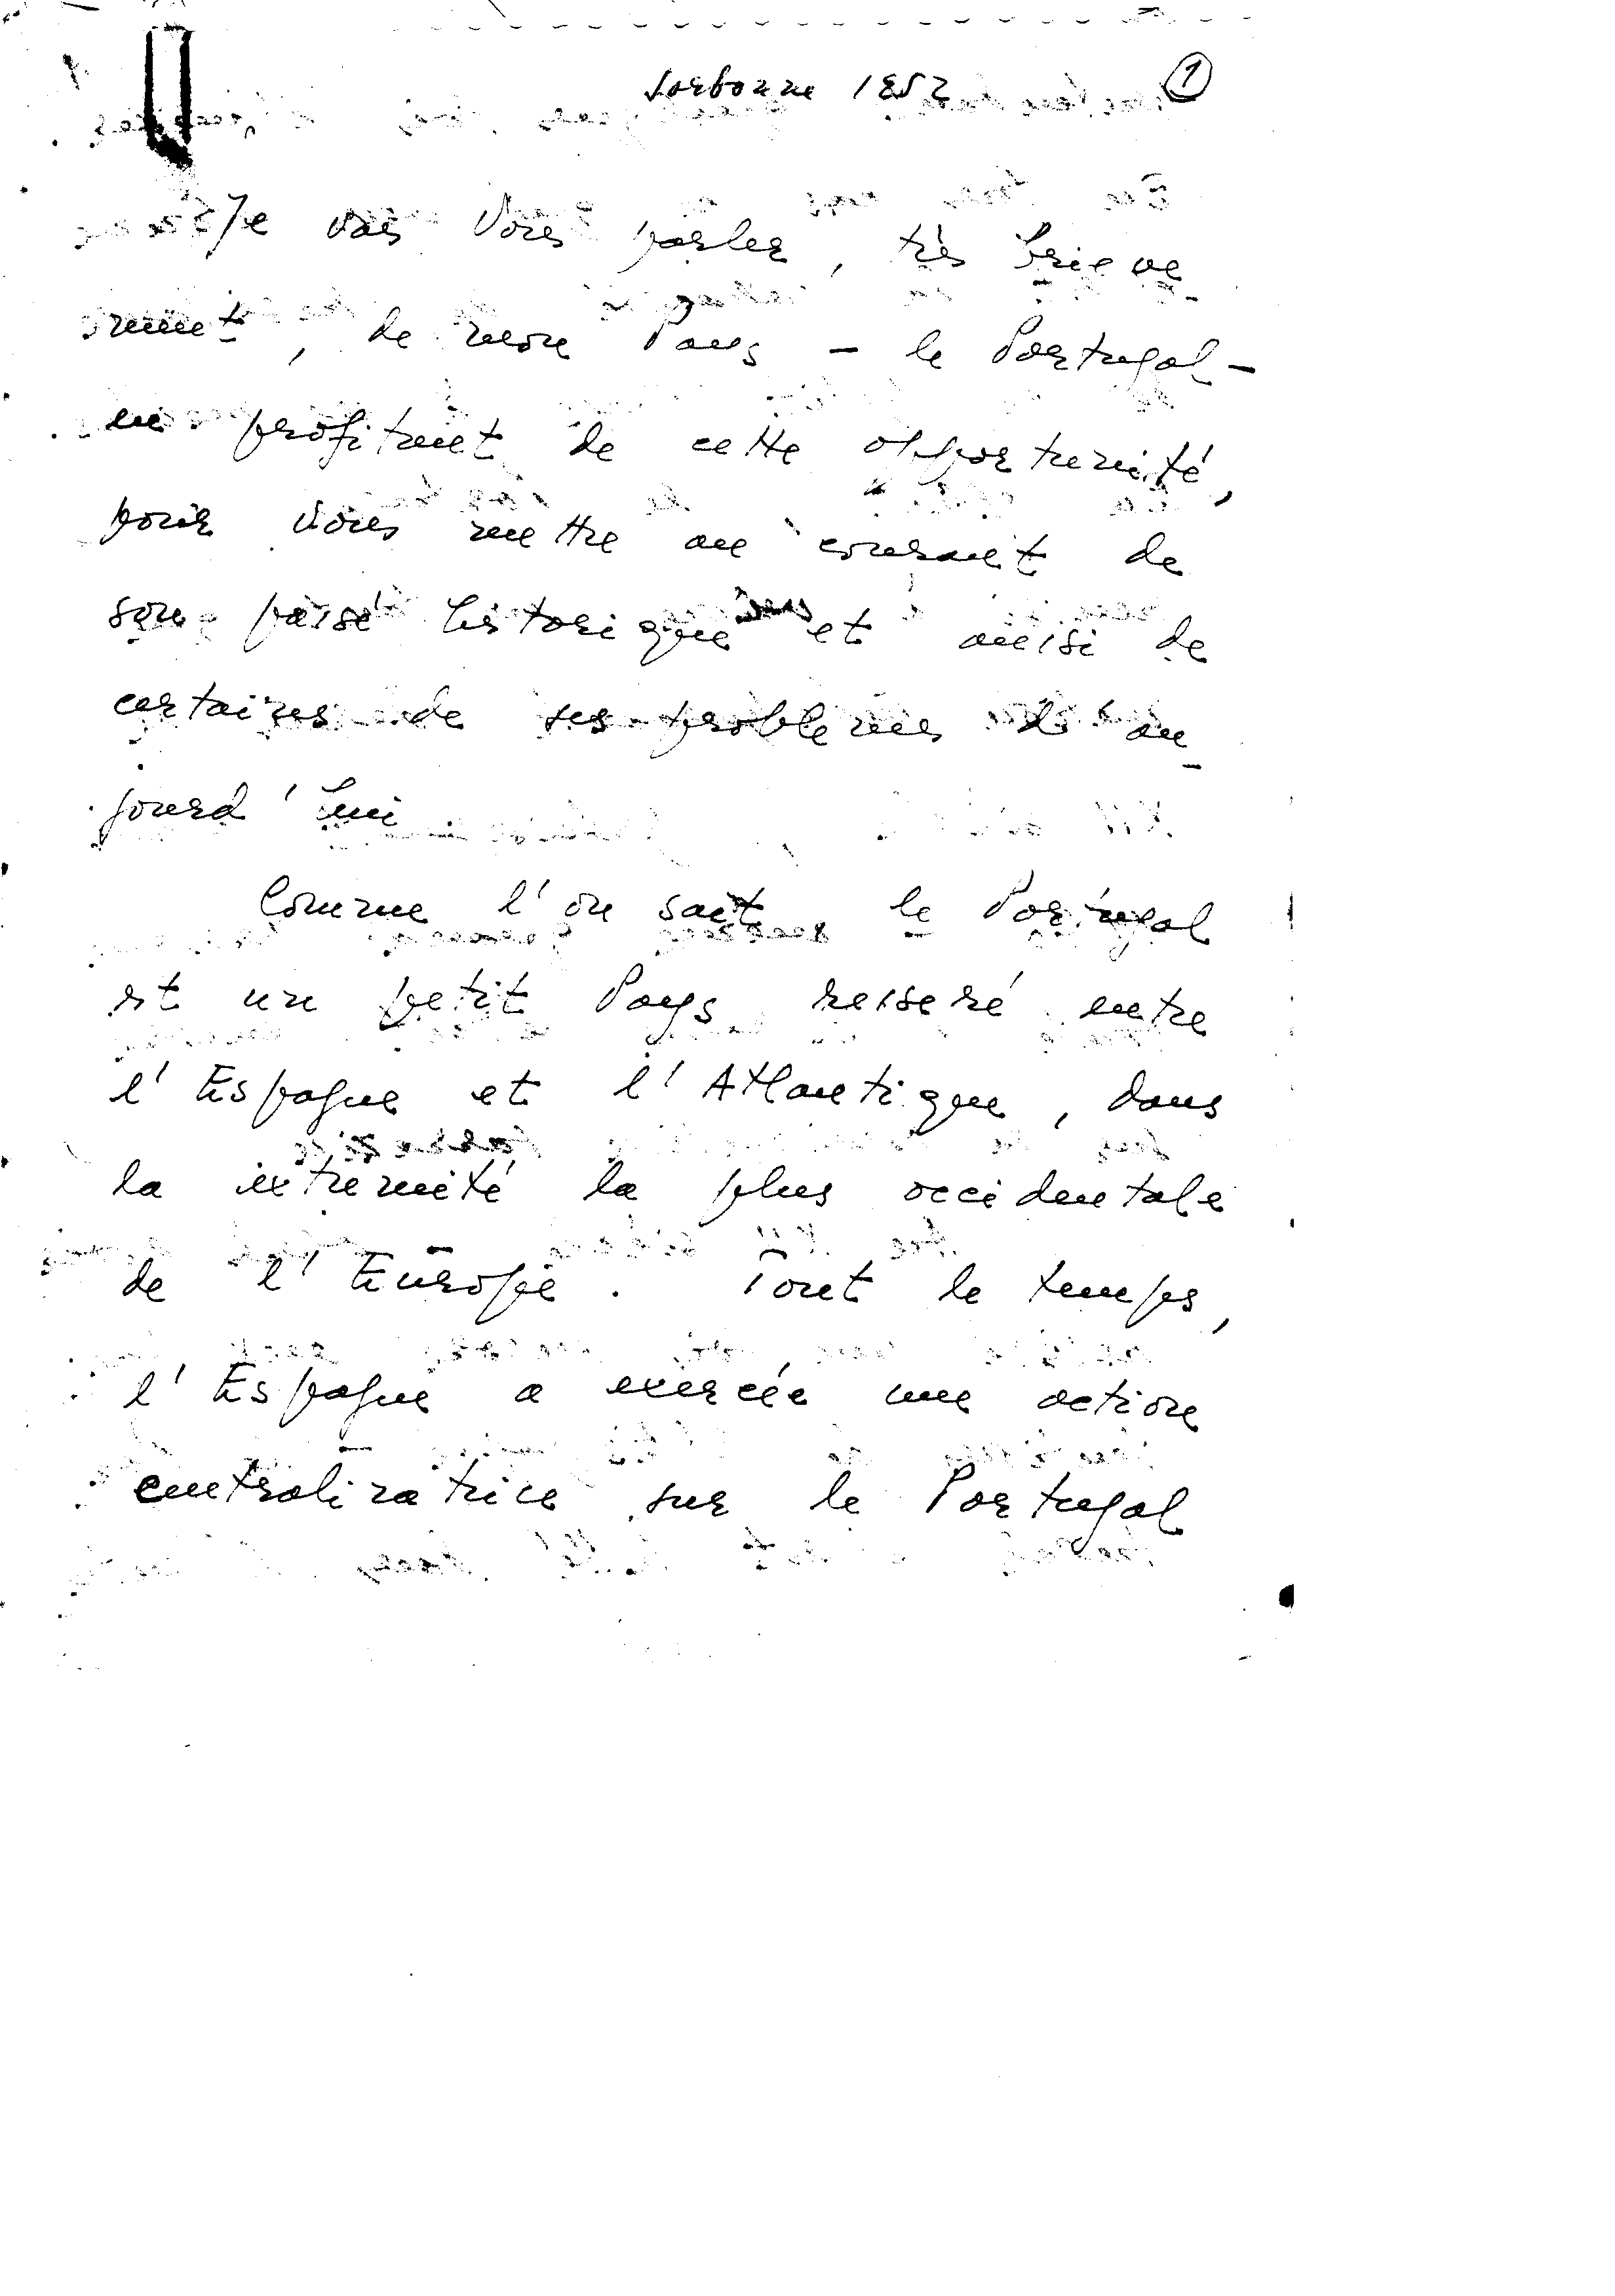 Sorbonne 1952 ①
Je vais vous parler, très briève-
ment, de mon Pays - le Portugal -
en profitant de cette opportunité,
pour vous mettre au courant de
son passé historique et aussi de
certaines de ses problemes d'au-
jourd'hui
Comme l'on sait, le Portugal
est un petit Pays resseré entre
l'Espagne et l'Atlantique, dans
la extremité la plus occidentale
de l'Europe. Tout le temps,
l'Espagne a exercée une action
centralizatrice sur le Portugal